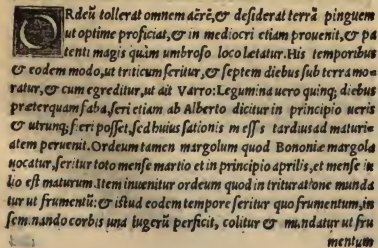 ORdeũ tollerat omnem aẽrẽ, & desiderat terrã pinguem
ut optime proficiat, & in mediocri etiam prouenit, & pa
tenti magis quàm umbroso loco lætatur. His temporibus
& eodem modo, ut triticum seritur, & septem diebus sub terra mo=
ratur, & cum egreditur, ut ait Varro: Legumina uero quinq; diebus
præterquam faba, seri etiam ab Alberto dicitur in principio ueris
& utrunq; fieri posset, sed huius sationis messis tardius ad maturi=
atem peruenit. Ordeum tamen margolum quod Bononiæ margola
uocatur, seritur toto mense martio et in principio aprilis, et mense iu
lio est maturum. Item inuenitur ordeum quod in trituratione munda
tur ut frumentũ: & istud eodem tempore seritur quo frumentum, in
seminando corbis una iugerũ perficit, colitur & mundatur ut fru
mentum